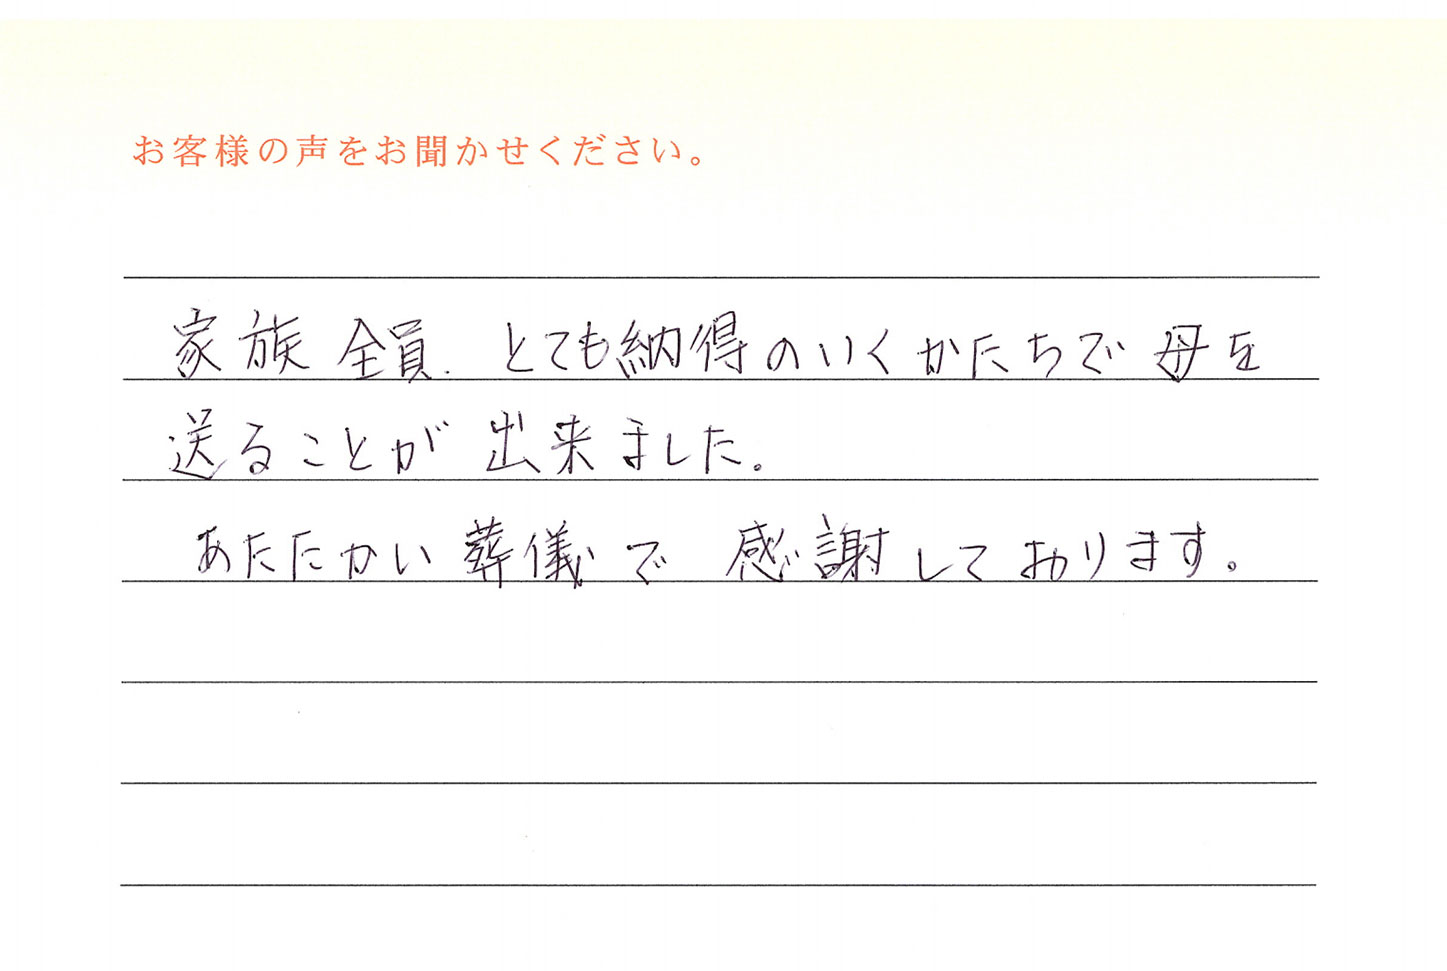 お客様の声をお聞かせください。
家族全員、とても納得のいくかたちで母を
送ることが出来ました。
あたたかい葬儀で感謝しております。